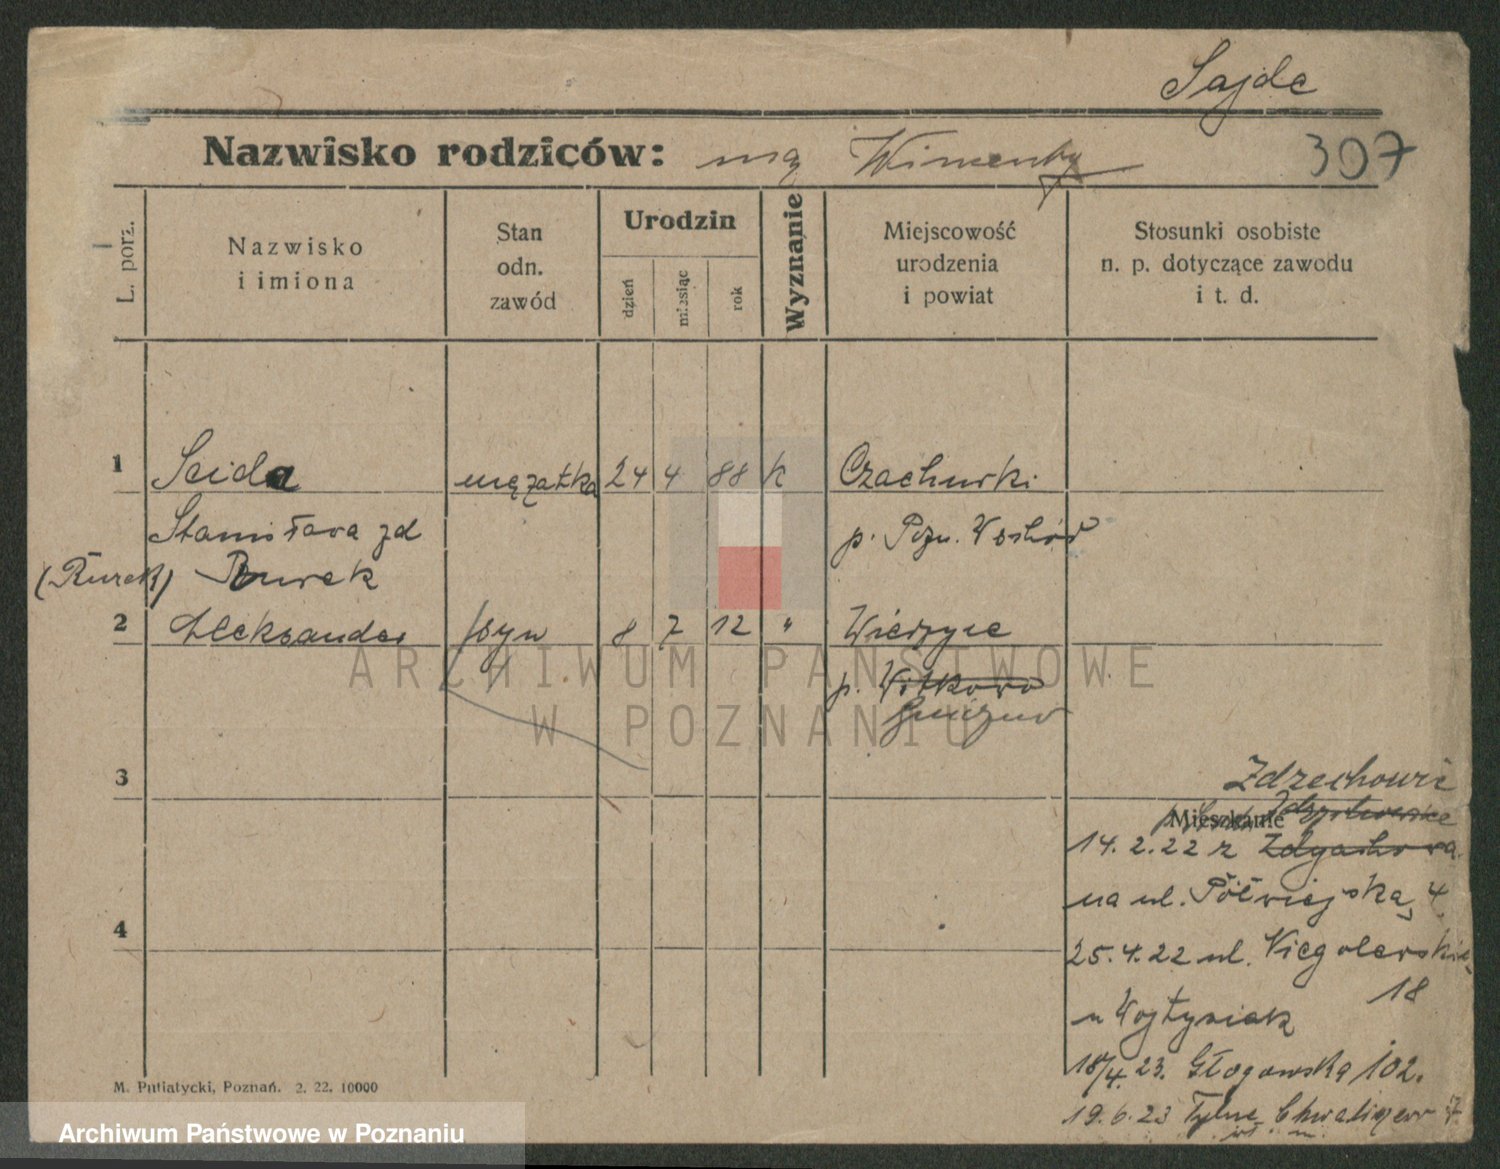 Sajda
Nazwisko rodziców: mą
307
L. porz.
Nazwisko
i imiona
Stan
odn.
zawód
Urodzin
dzień
miesiąc
rok
Wyznanie
Miejscowość
urodzenia
i powiat
Stosunki osobiste
n. p. dotyczące zawodu
i t. d.
1 Seida mężatka 24 4 88 k Czachurki
Stanisława zd p. Pozn. Wschód
(Rurek) Rurek
2 Aleksander syn 8 7 12 " Wierzyce
p. Witkowo
Gniezno
3
Zdzechowie
Mieszkanie
14.2.22 z
na ul. Półwiejską 4
25.4.22 ul. Niegolewskich
18
u Wojtysiak
18/4.23. Głogowska 102.
19.6.23 Tylne Chwaliszewo 7
4
M. Putiatycki, Poznań. 2. 22. 10000
ARCHIWUM PAŃSTWOWE
W POZNANIU
Archiwum Państwowe w Poznaniu